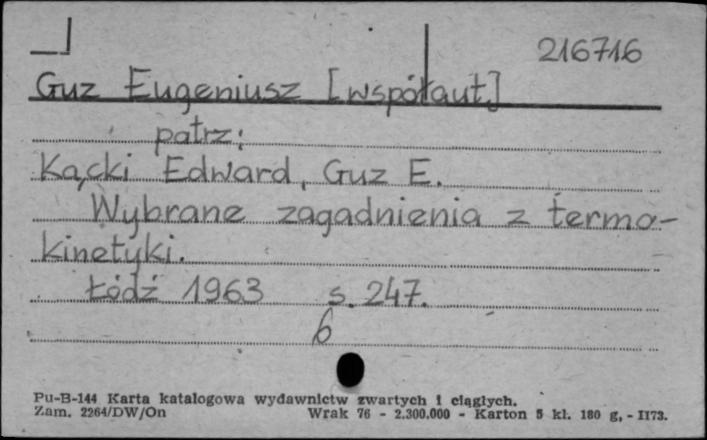 216716
Guz Eugeniusz [współaut.]
patrz:
Kącki Edward, Guz E.
Wybrane zagadnienia z termo-
kinetyki.
Łódź 1963 s. 247.
6
Pu-B-144 Karta katalogowa wydawnictw zwartych i ciągłych.
Zam. 2264/DW/On Wrak 76 - 2.300.000 - Karton 5 kl. 180 g. - II73.